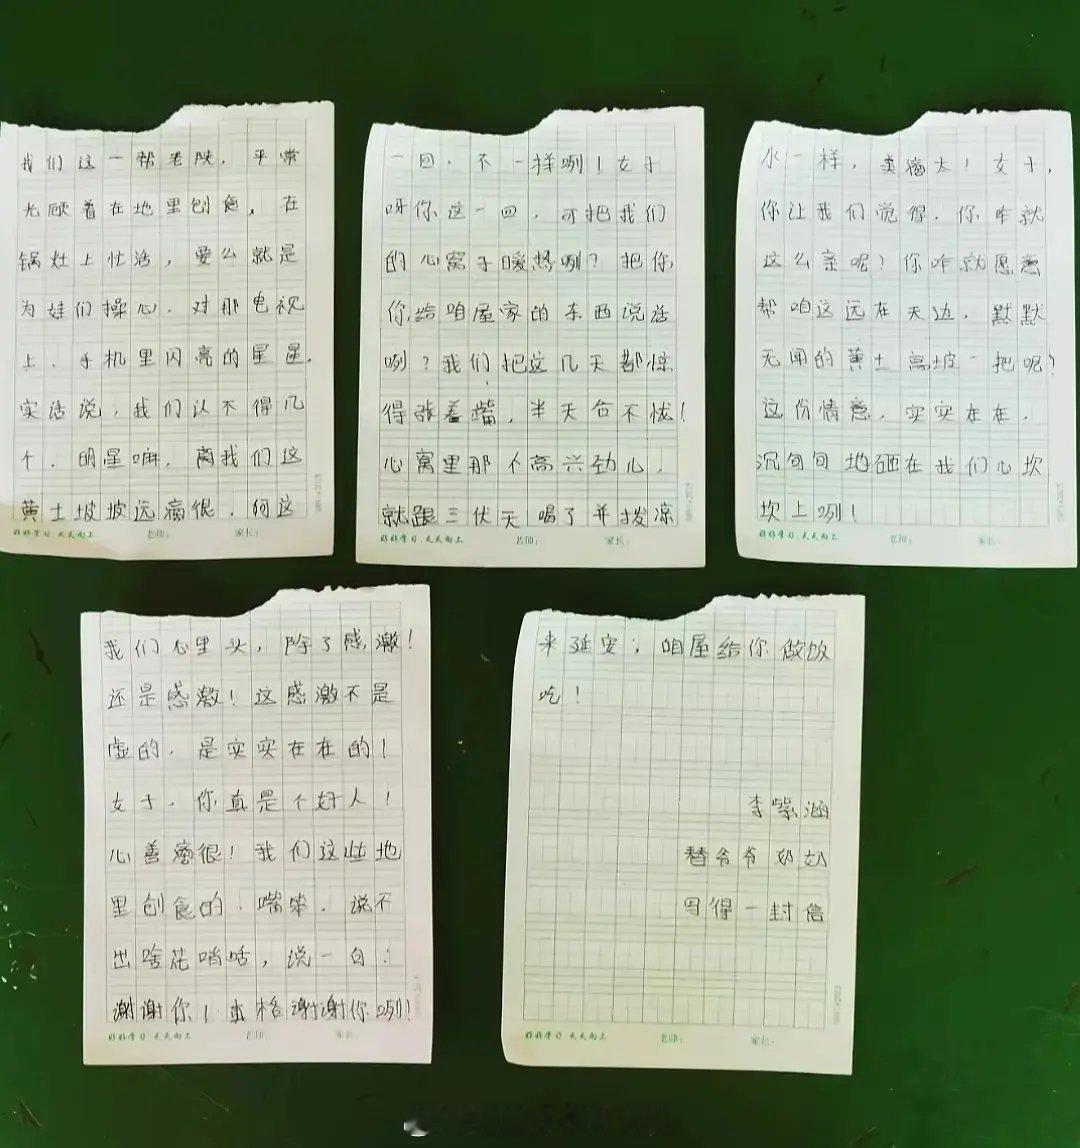 我们这一帮老陕，平常
光顾着在地里刨食，在
锅灶上忙活，要么就是
为娃们操心．对那电视
上、手机里闪亮的星星，
实话说，我们认不得几
个．明星嘛，离我们这
黄土坡坡远滴很．何这
好好学习 天天向上 老师： 家长：
一回，不一样咧！女子
呀你这一回，可把我们
的心窝子暖热咧？把你，
你给咱屋家的东西说活
咧？我们把这几天都惊
得张着嘴，半天合不拢！
心窝里那个高兴劲儿，
就跟三伏天喝了井拨凉
好好学习 天天向上 老师： 家长：
水一样，美滴太！女子，
你让我们觉得．你咋就
这么亲呢？你咋就愿意
帮咱这远在天边，默默
无闻的黄土高坡一把呢？
这份情意，实实在在，
沉甸甸地砸在我们心坎
坎上咧！
好好学习 天天向上 老师： 家长：
我们心里头，除了感激！
还是感激！这感激不是
虚的．是实实在在的！
女子．你真是个好人！
心善滴很！我们这些地
里刨食的．嘴笨．说不
出啥花哨话，说一句：
谢谢你！再格谢谢你咧！
好好学习 天天向上 老师： 家长：
来延安；咱屋给你做饭
吃！
李紫涵
替爷爷奶奶
写得一封信
好好学习 天天向上 老师： 家长：